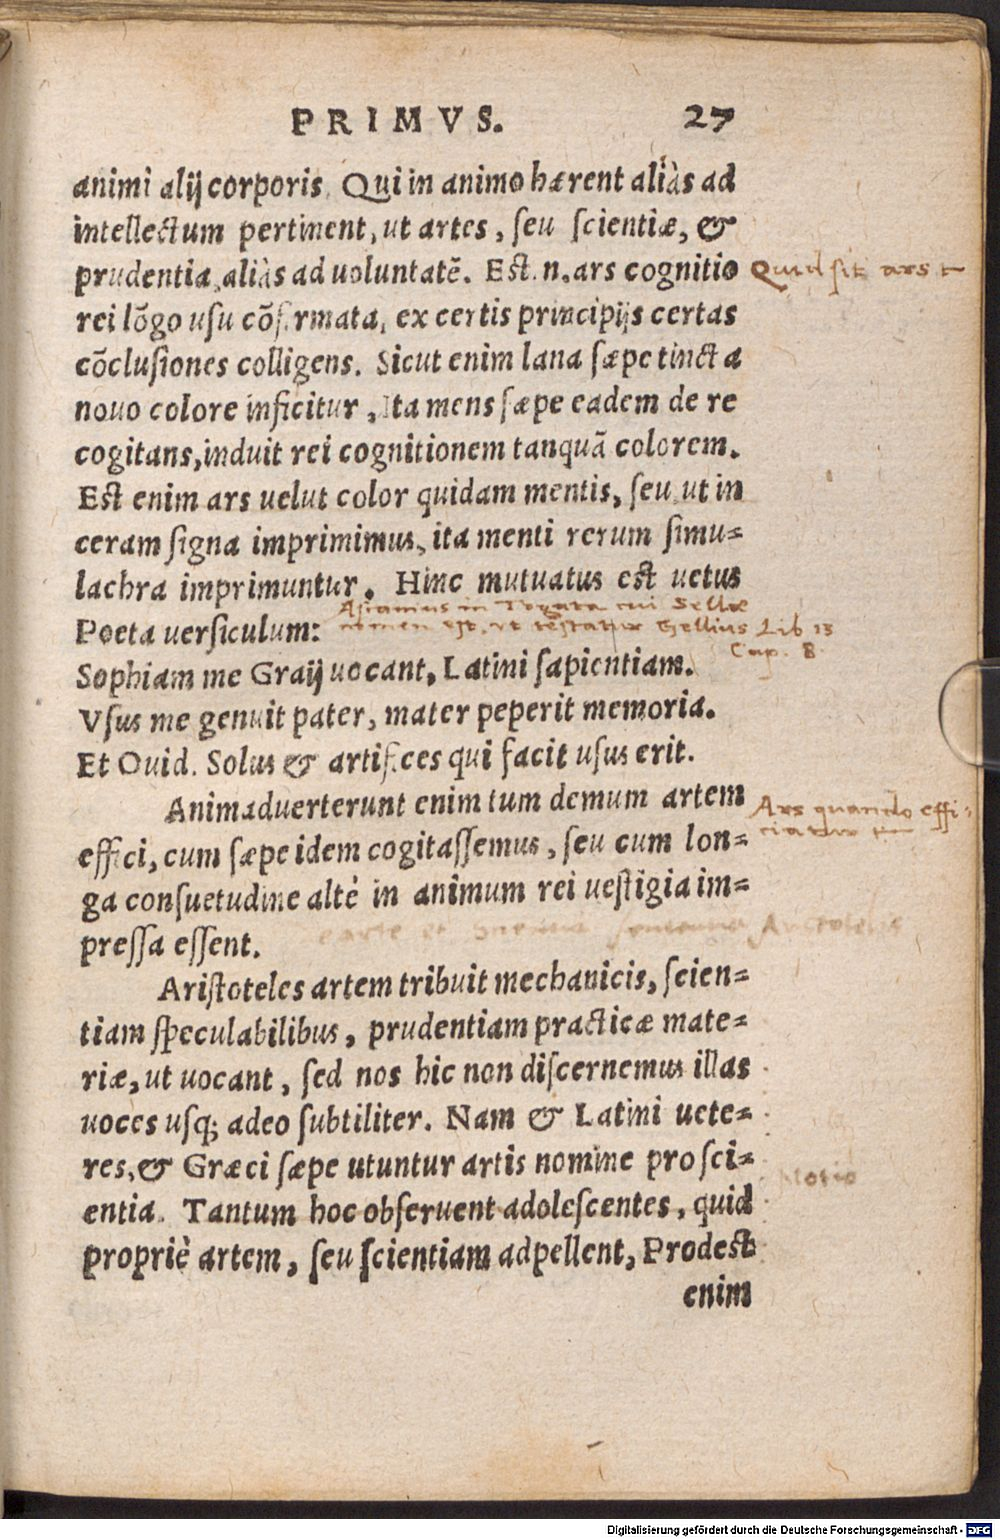 PRIMVS. 27
animi alij corporis. Qui in animo hærent aliàs ad
intellectum pertinent, ut artes, seu scientiæ, &
prudentia, aliàs ad uoluntatē. Est .n. ars cognitio
Quid sit ars
rei lōgo usu cōfirmata, ex certis principijs certas
cōclusiones colligens. Sicut enim lana sæpe tincta
nouo colore inficitur, Ita mens sæpe eadem de re
cogitans, induit rei cognitionem tanquā colorem.
Est enim ars uelut color quidam mentis, seu ut in
ceram signa imprimimus, ita menti rerum simu=
lachra imprimuntur. Hinc mutuatus est uetus
Afranius in Togata cui Sellæ
Poeta uersiculum:
nomen est, ut testatur Gellius Lib 13
Cap. 8
Sophiam me Graij uocant, Latini sapientiam.
Vsus me genuit pater, mater peperit memoria.
Et Ouid. Solus & artifices qui facit usus erit.
Animaduerterunt enim tum demum artem
Ars quando effi-
ciatur
effici, cum sæpe idem cogitassemus, seu cum lon=
ga consuetudine altè in animum rei uestigia im=
pressa essent.
arte et Aristoteles
Aristoteles artem tribuit mechanicis, scien=
tiam speculabilibus, prudentiam practicæ mate=
riæ, ut uocant, sed nos hic non discernemus illas
uoces usq; adeo subtiliter. Nam & Latini uete=
res, & Græci sæpe utuntur artis nomine pro sci=
Notio
entia. Tantum hoc obseruent adolescentes, quid
propriè artem, seu scientiam adpellent, Prodest
enim
Digitalisierung gefördert durch die Deutsche Forschungsgemeinschaft - DFG